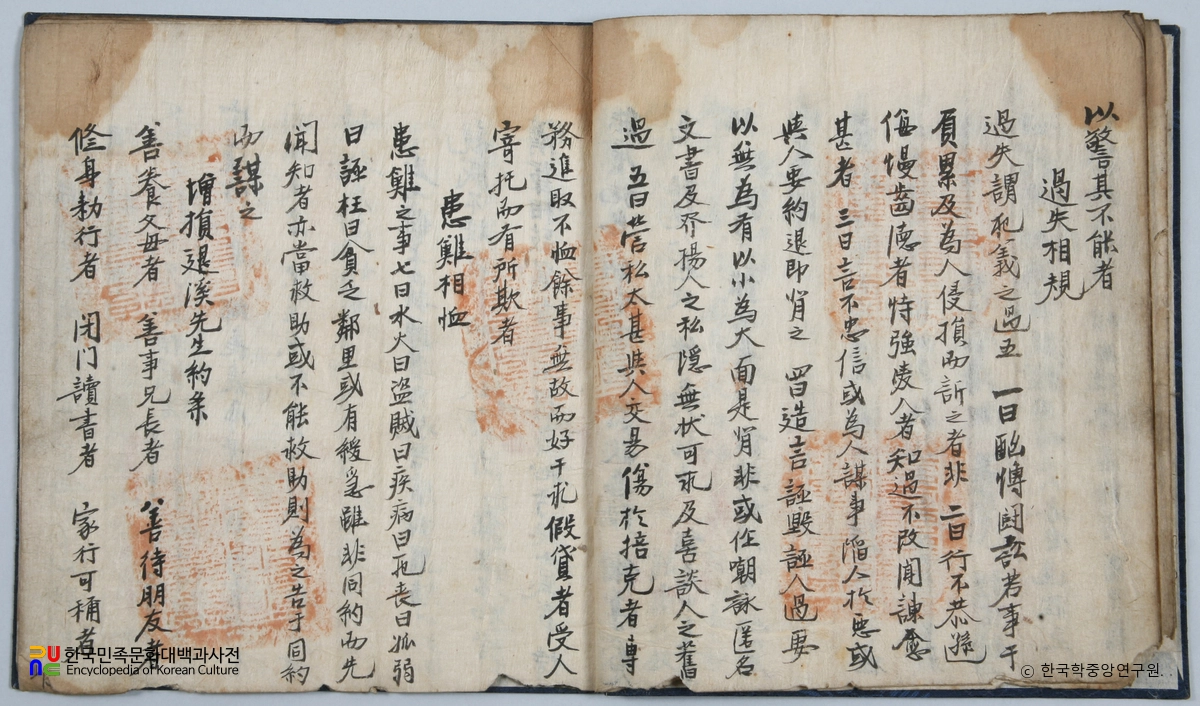 以警其不能者
過失相規
過失謂犯義之過五 一曰酗愽鬪訟若事干
負累及為人侵損而訴之者非 二曰行不恭遜
侮慢齒德者恃強凌人者知過不改聞諫愈
甚者 三曰言不忠信或為人謀事陷人於惡或
與人要約退即背之 四曰造言誣毀誣人過惡
以無為有以小為大面是背非或作嘲詠匿名
文書及發揚人之私隱無狀可求及喜談人之舊
過 五曰營私太甚與人交易傷於掊克者專
務進取不恤餘事無故而好干求假貸者受人
寄托而有所欺者
患難相恤
患難之事七曰水火曰盜賊曰疾病曰死喪曰孤弱
曰誣枉曰貧乏鄰里或有緩急雖非同約而先
聞知者亦當救助或不能救助則為之告于同約
而謀之
增損退溪先生約条
善養父母者 善事兄長者 善待朋友者
修身勅行者 闭门讀書者 家行可稱者
한국민족문화대백과사전
Encyclopedia of Korean Culture
ⓒ 한국학중앙연구원.